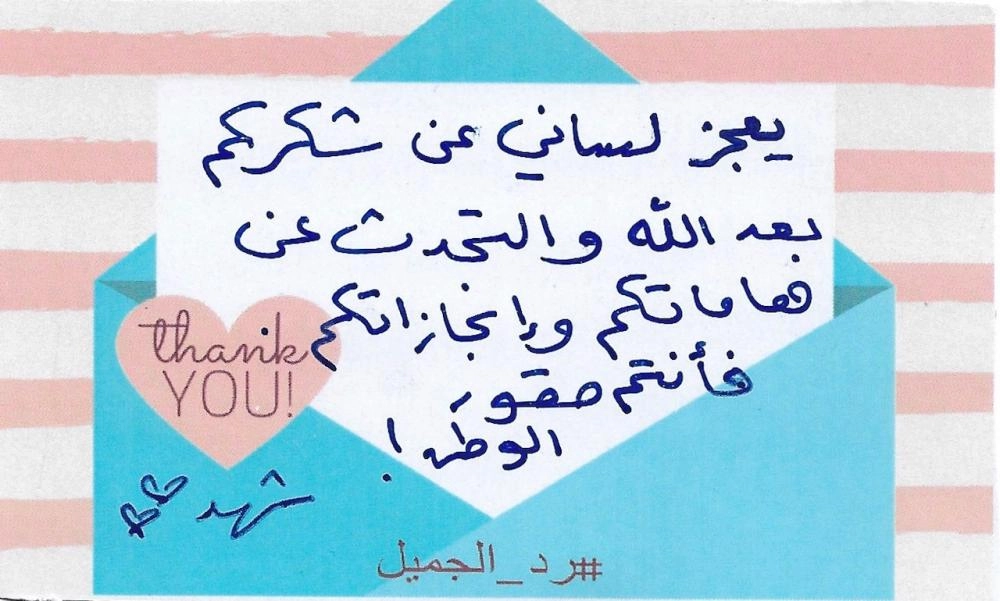 يعجز لساني عن شكركم
بعد الله والتحدث عن
هاماتكم وإنجازاتكم
فأنتم صقور
الوطن!
thank
YOU!
شهد
#رد_الجميل